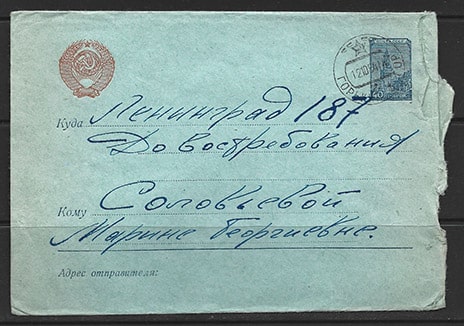 Куда Ленинград 187
До востребования
Кому Соловьевой
Марине Георгиевне.
Адрес отправителя: